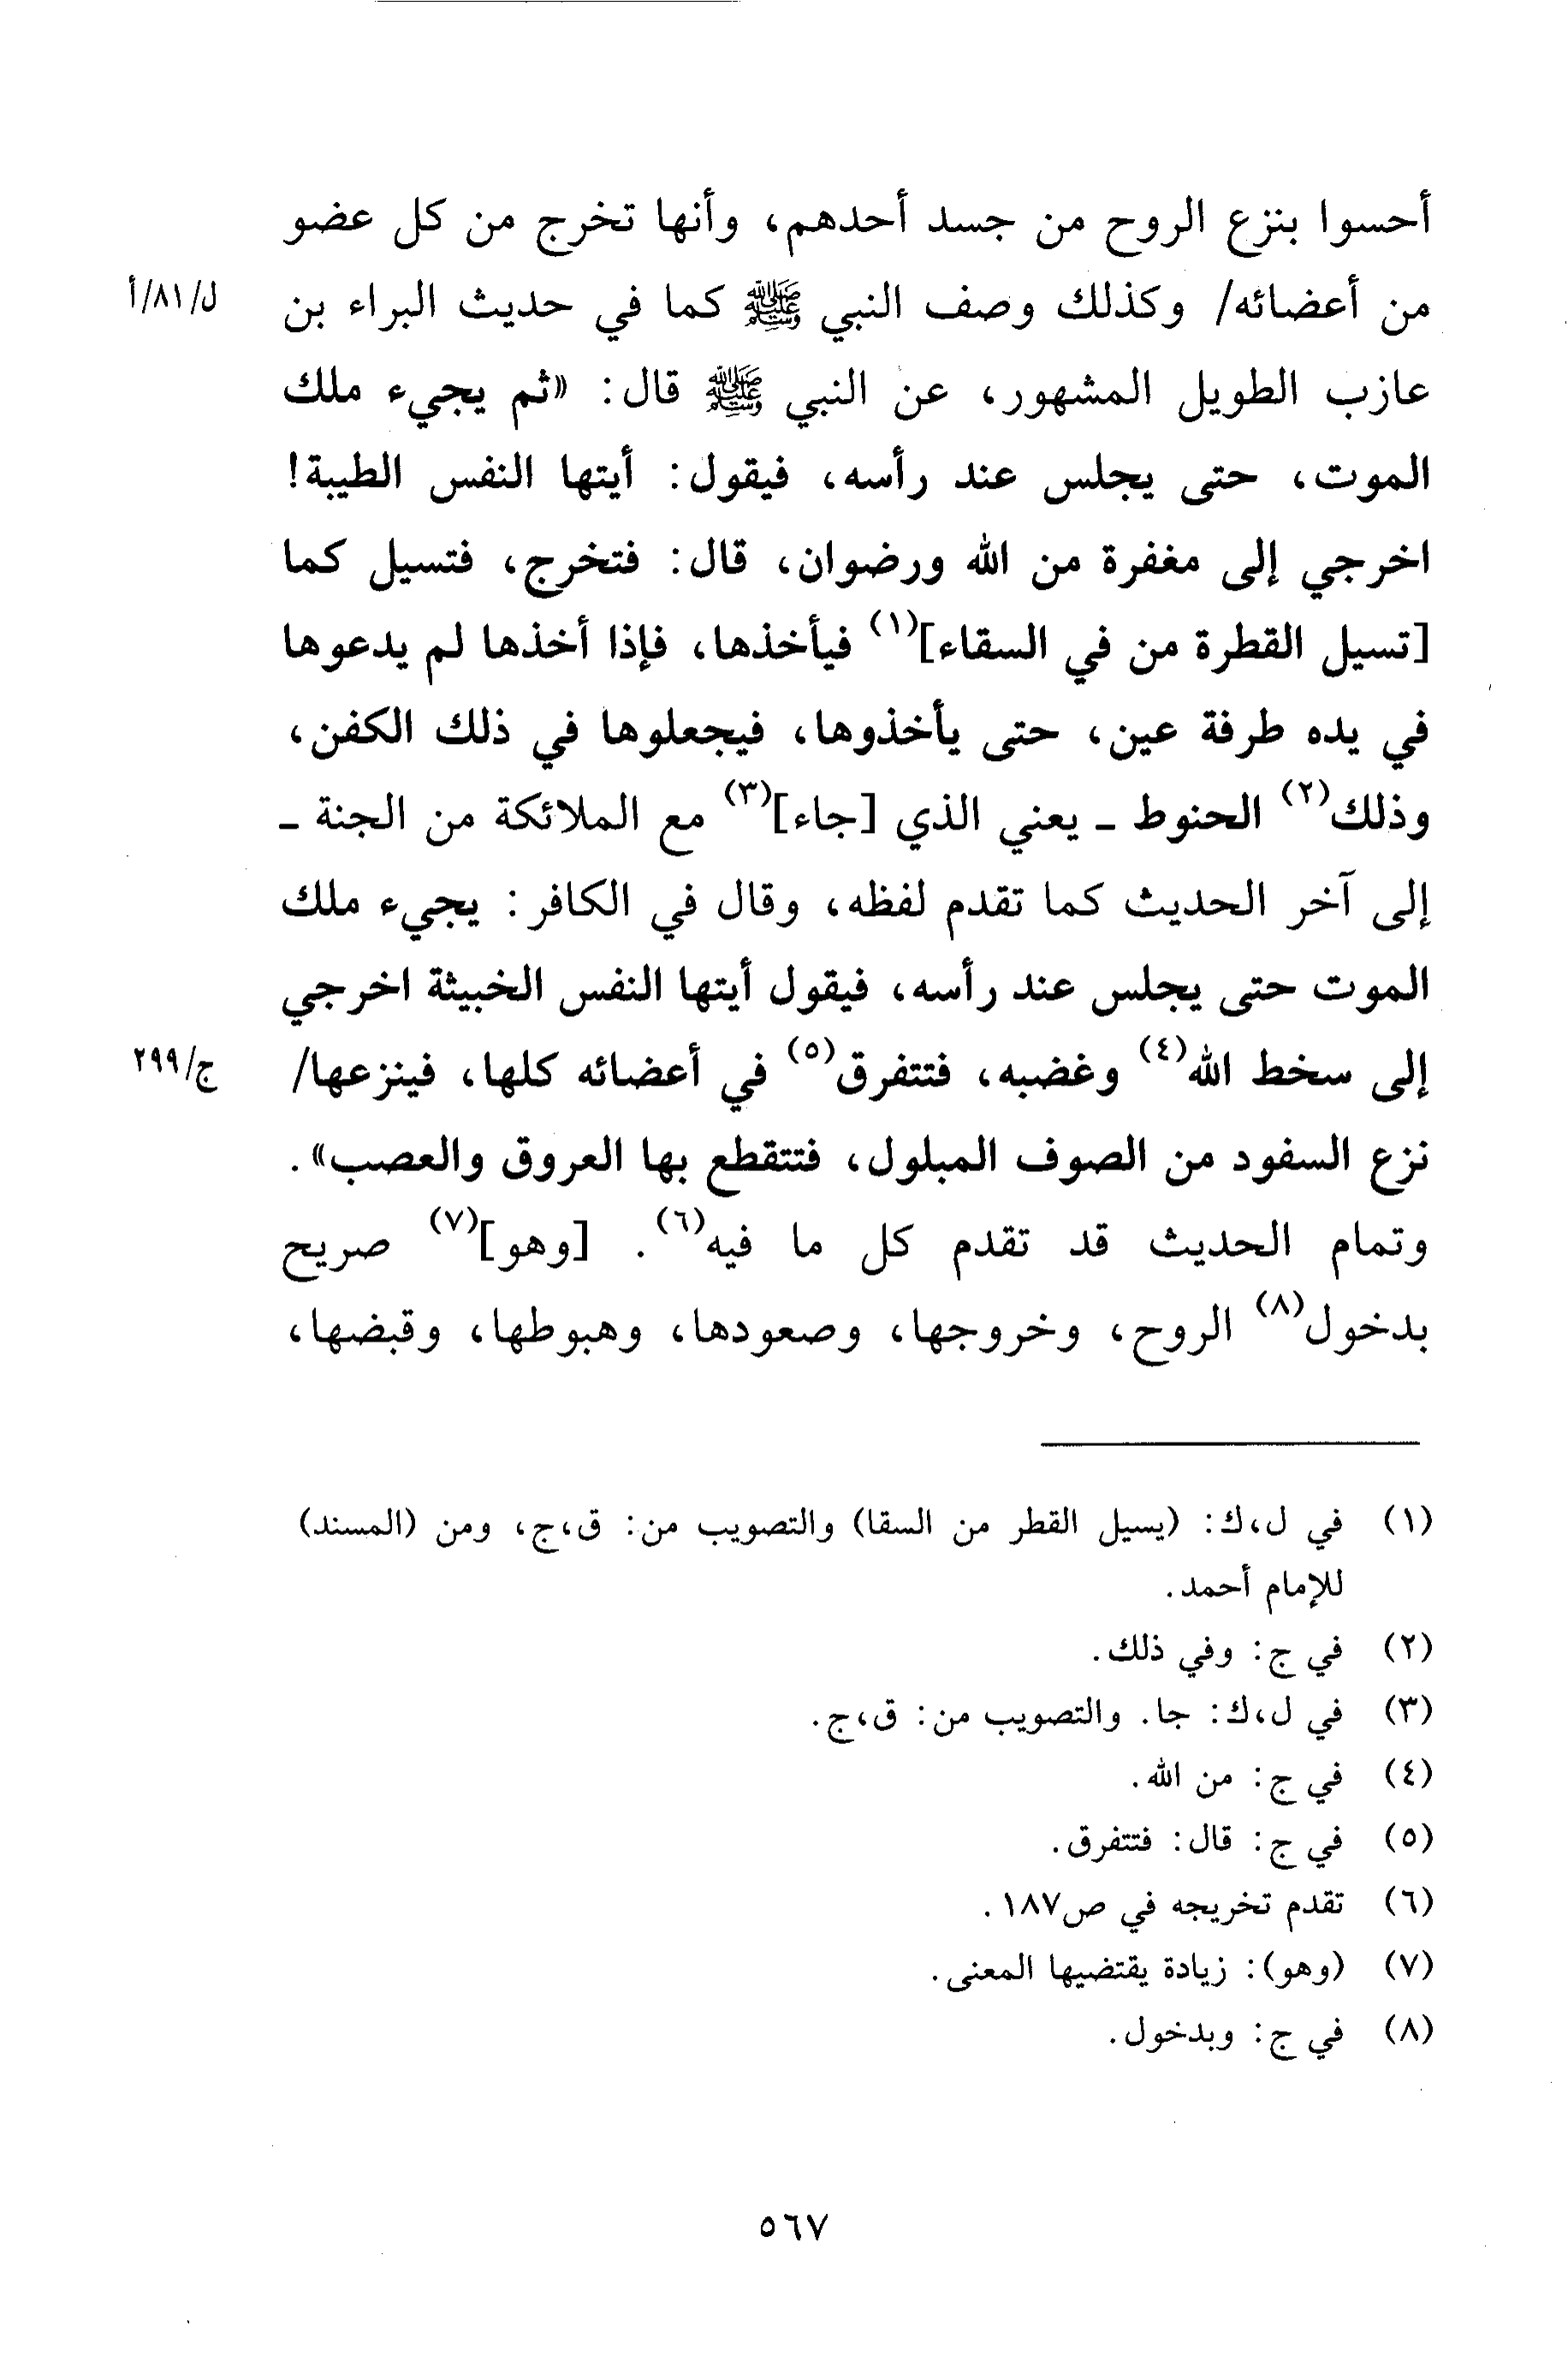 أحسوا بنزع الروح من جسد أحدهم، وأنها تخرج من كل عضو
من أعضائه/ وكذلك وصف النبي ﷺ كما في حديث البراء بن
ل/٨١/أ
عازب الطويل المشهور، عن النبي ﷺ قال: «ثم يجيء ملك
الموت، حتى يجلس عند رأسه، فيقول: أيتها النفس الطيبة!
اخرجي إلى مغفرة من الله ورضوان، قال: فتخرج، فتسيل كما
[تسيل القطرة من في السقاء](١) فيأخذها، فإذا أخذها لم يدعوها
في يده طرفة عين، حتى يأخذوها، فيجعلوها في ذلك الكفن،
وذلك(٢) الحنوط ـ يعني الذي [جاء](٣) مع الملائكة من الجنة ـ
إلى آخر الحديث كما تقدم لفظه، وقال في الكافر: يجيء ملك
الموت حتى يجلس عند رأسه، فيقول أيتها النفس الخبيثة اخرجي
إلى سخط الله(٤) وغضبه، فتتفرق(٥) في أعضائه كلها، فينزعها/
ج/٢٩٩
نزع السفود من الصوف المبلول، فتتقطع بها العروق والعصب».
وتمام الحديث قد تقدم كل ما فيه(٦). [وهو](٧) صريح
بدخول(٨) الروح، وخروجها، وصعودها، وهبوطها، وقبضها،
(١) في ل،ك: (يسيل القطر من السقا) والتصويب من: ق،ج، ومن (المسند)
للإمام أحمد.
(٢) في ج: وفي ذلك.
(٣) في ل،ك: جا. والتصويب من: ق،ج.
(٤) في ج: من الله.
(٥) في ج: قال: فتتفرق.
(٦) تقدم تخريجه في ص١٨٧.
(٧) (وهو): زيادة يقتضيها المعنى.
(٨) في ج: وبدخول.
٥٦٧